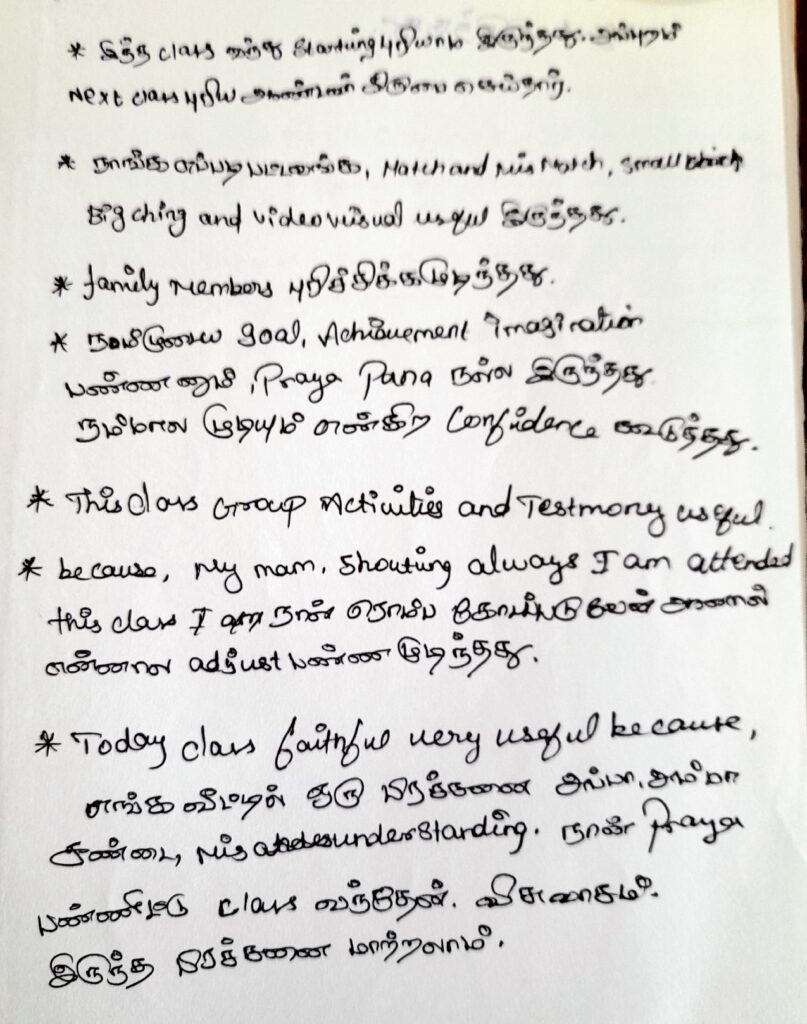 * இந்த class வந்து Starting புரியாம இருந்தது. அப்புறம்
Next class புரிய ஆண்டவர் கிருபை செய்தார்.
* நாங்க எப்படி பட்டவங்க, Match and Mis Match, Small chink
Big ching and video visual useful இருந்தது.
* family Members புரிச்சிக்கமுடிந்தது.
* நம்முடைய goal, Achivuement imagination
பண்ணனும், Praya Pana நல்ல இருந்தது
நம்மால முடியும் என்கிற Confidence கூடுந்தது.
* This Class Group Activities and Testmony useful.
* because, My mam. Shouting always I am attended
this class I நான் ரொம்ப கோபப்படுவேன் ஆனால்
என்னால adjust பண்ண முடிந்தது.
* Today class faithful very useful because,
எங்க வீட்டில் ஒரு பிரச்சனை அப்பா, அம்மா
சண்டை, Mis understanding. நான் Praya
பண்ணிட்டு class வந்தேன். விசுவாசம்.
இருந்த பிரச்சனை மாற்றலாம்.